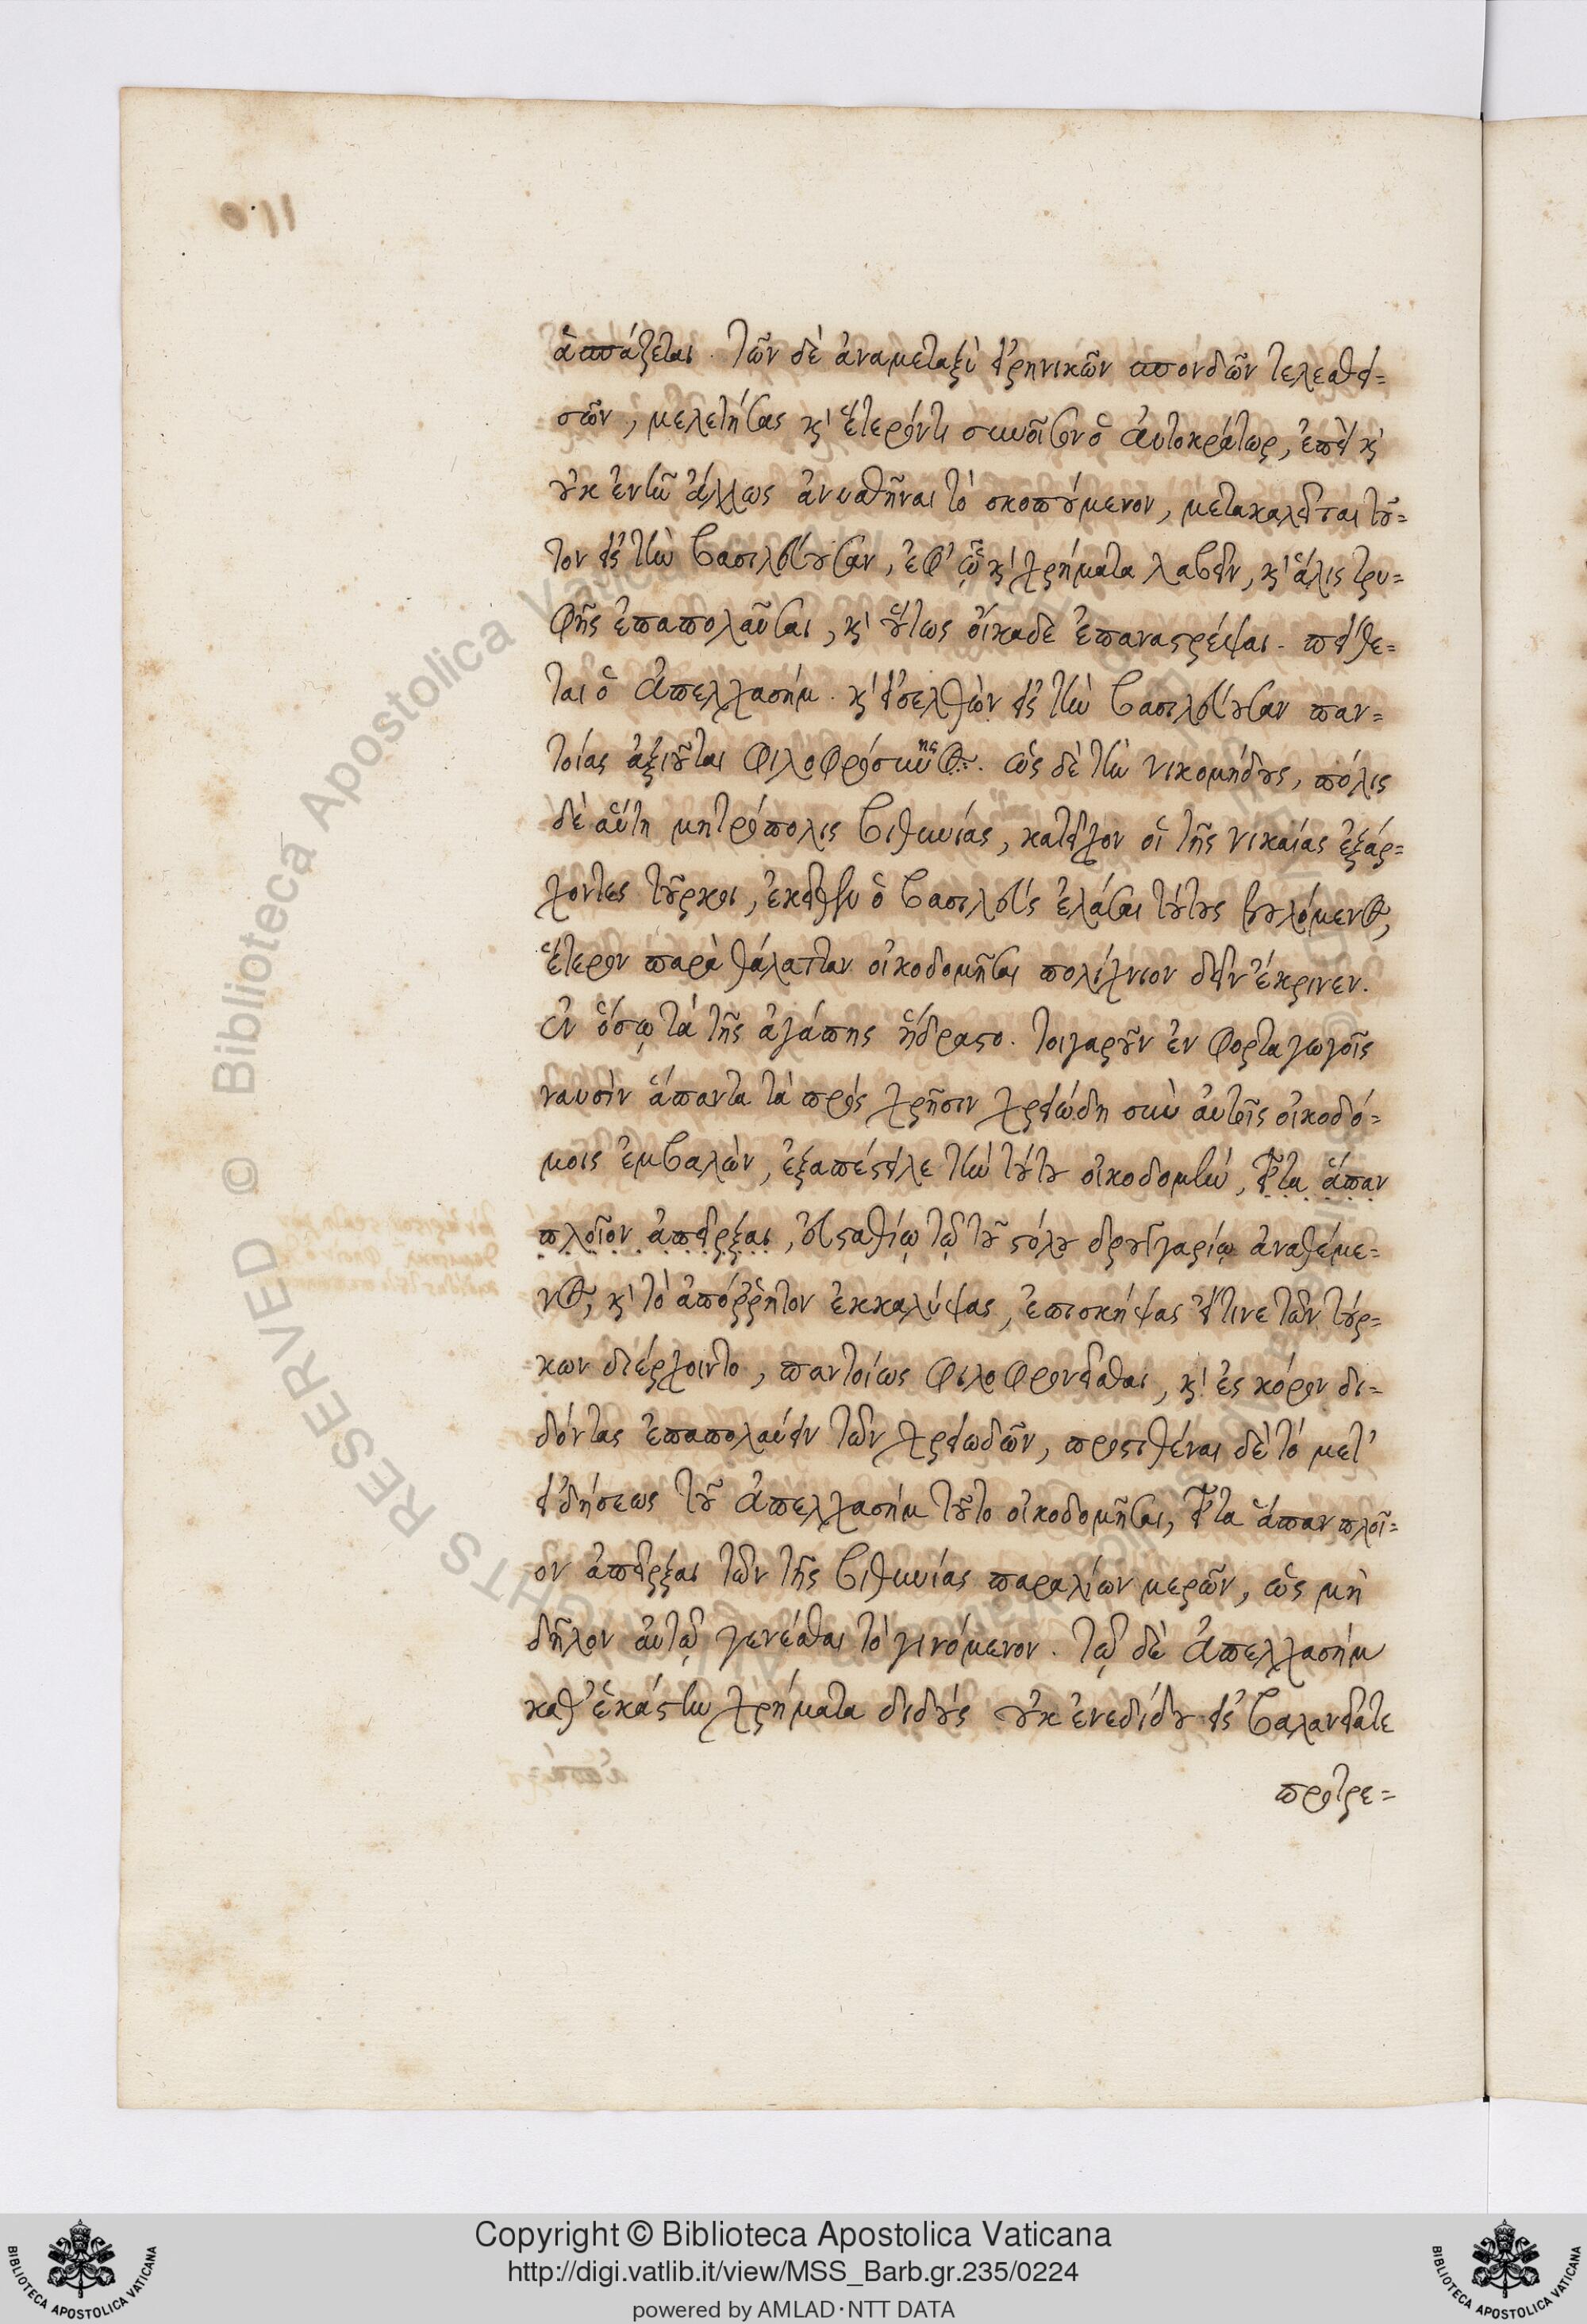 ἀσπάζεται. τῶν δὲ ἀναμεταξὺ εἰρηνικῶν σπονδῶν τελεσθει=
σῶν, μελετήσας κ' ἕτερόν τι συνοῖσον ὁ αὐτοκράτωρ, ἐπεὶ κ'
οὐκ ἐνῆν ἄλλως ἀνυσθῆναι τὸ σκοπούμενον, μετακαλεῖται τοῦ=
τον εἰς τὴν βασιλεύουσαν, ἐφ' ᾧ κ' χρήματα λαβεῖν, κ' ἅλις τρυ=
φῆς ἐπαπολαῦσαι, κ' οὕτως οἴκαδε ἐπαναστρέψαι. πείθε=
ται ὁ Ἀπελχασήμ. κ' εἰσελθὼν εἰς τὴν βασιλεύουσαν παν=
τοίας ἀξιοῦται φιλοφροσύνης. ὡς δὲ τὴν νικομήδους, πόλις
δὲ αὕτη μητρόπολις βιθυνίας, κατεῖχον οἱ τῆς νικαίας ἐξάρ=
χοντες τοῦρκοι, ἐκεῖθεν ὁ βασιλεὺς ἐλάσαι τούτους βουλόμενος,
ἕτερον παρὰ θάλατταν οἰκοδομῆσαι πολίχνιον δεῖν ἔκρινεν.
ἐν ὅσῳ τὰ τῆς ἀγάπης ἥδραστο. τοιγαροῦν ἐν φορταγωγοῖς
ναυσὶν ἅπαντα τὰ πρὸς χρῆσιν χρειώδη σὺν αὐτοῖς οἰκοδό=
μοις ἐμβαλὼν, ἐξαπέστειλε τὴν τούτου οἰκοδομὴν, εἶτα ἅπαν
πλοῖον ἀπεῖρξαι, εὐσταθίῳ τῷ τοῦ στόλου δρουγγαρίῳ ἀναθέμε=
νος, κ' τὸ ἀπόρρητον ἐκκαλύψας, ἐπισκήψας εἴτινε τῶν τούρ=
κων διέρχοιντο, παντοίως φιλοφρονεῖσθαι, κ' ἐς κόρον δι=
δόντας ἐπαπολαύειν τῶν χρειωδῶν, προστιθέναι δὲ τό μετ'
εἰδήσεως τοῦ Ἀπελχασὴμ τοῦτο οἰκοδομῆσαι, εἶτα ἅπαν πλοῖ=
ον ἀπεῖρξαι τῶν τῆς βιθυνίας παραλίων μερῶν, ὡς μὴ
δῆλον αὐτῷ γενέσθαι τὸ γινόμενον. τῷ δὲ Ἀπελχασὴμ
καθ' ἑκάστην χρήματα διδοὺς οὐκ ἐνεδίδου εἰς βαλανεῖάτε
προτρε=
Copyright © Biblioteca Apostolica Vaticana
http://digi.vatlib.it/view/MSS_Barb.gr.235/0224
powered by AMLAD·NTT DATA